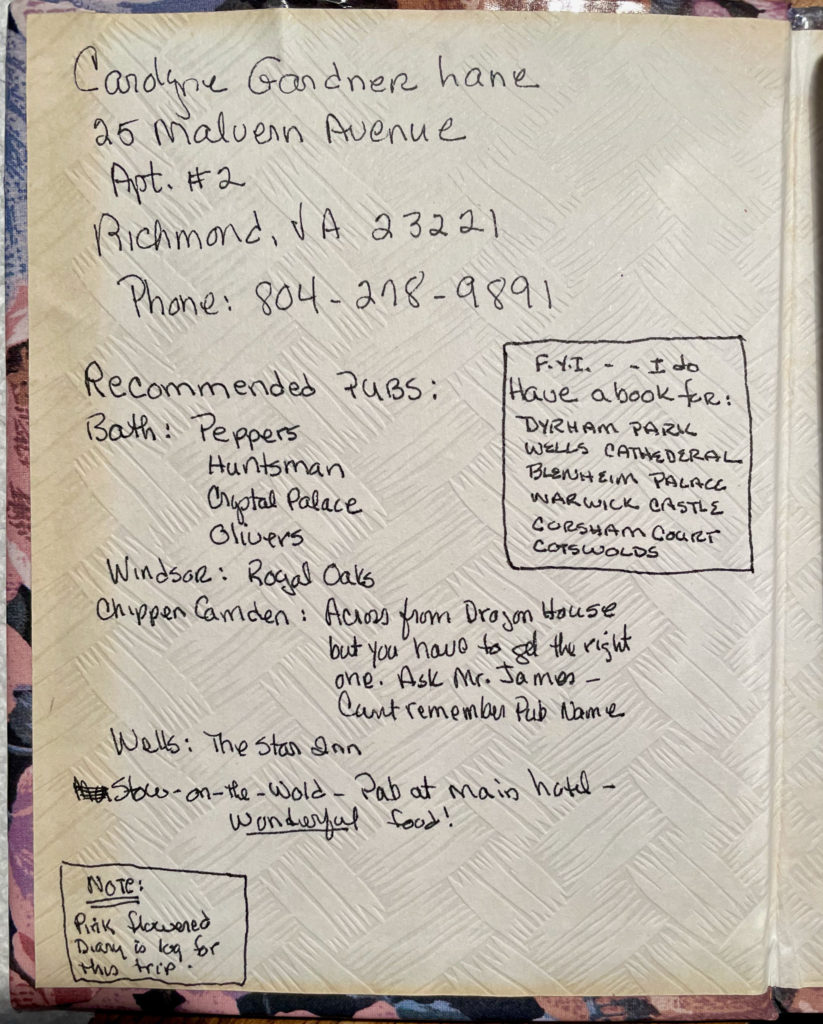 Carolyne Gardner Lane
25 Malvern Avenue
Apt. #2
Richmond, VA 23221
Phone: 804-278-9891
Recommended PUBS:
Bath: Peppers
Huntsman
Crystal Palace
Olivers
Windsor: Royal Oaks
Chippen Camden: Across from Dragon House
but you have to get the right
one. Ask Mr. James -
Can't remember Pub Name
Wells: The Star Inn
Stow-on-the-Wold - Pub at main hotel -
Wonderful food!
F.Y.I. - - I do
Have a book for:
DYRHAM PARK
WELLS CATHEDERAL
BLENHEIM PALACE
WARWICK CASTLE
CORSHAM COURT
COTSWOLDS
NOTE:
Pink flowered
Diary is log for
this trip.